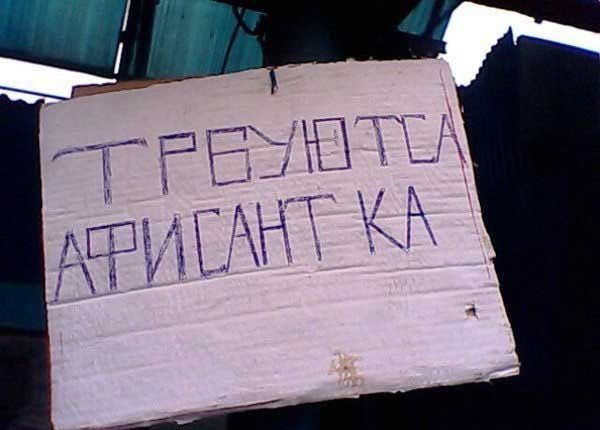 ТРЕБУЮТСА
АФИСАНТ КА